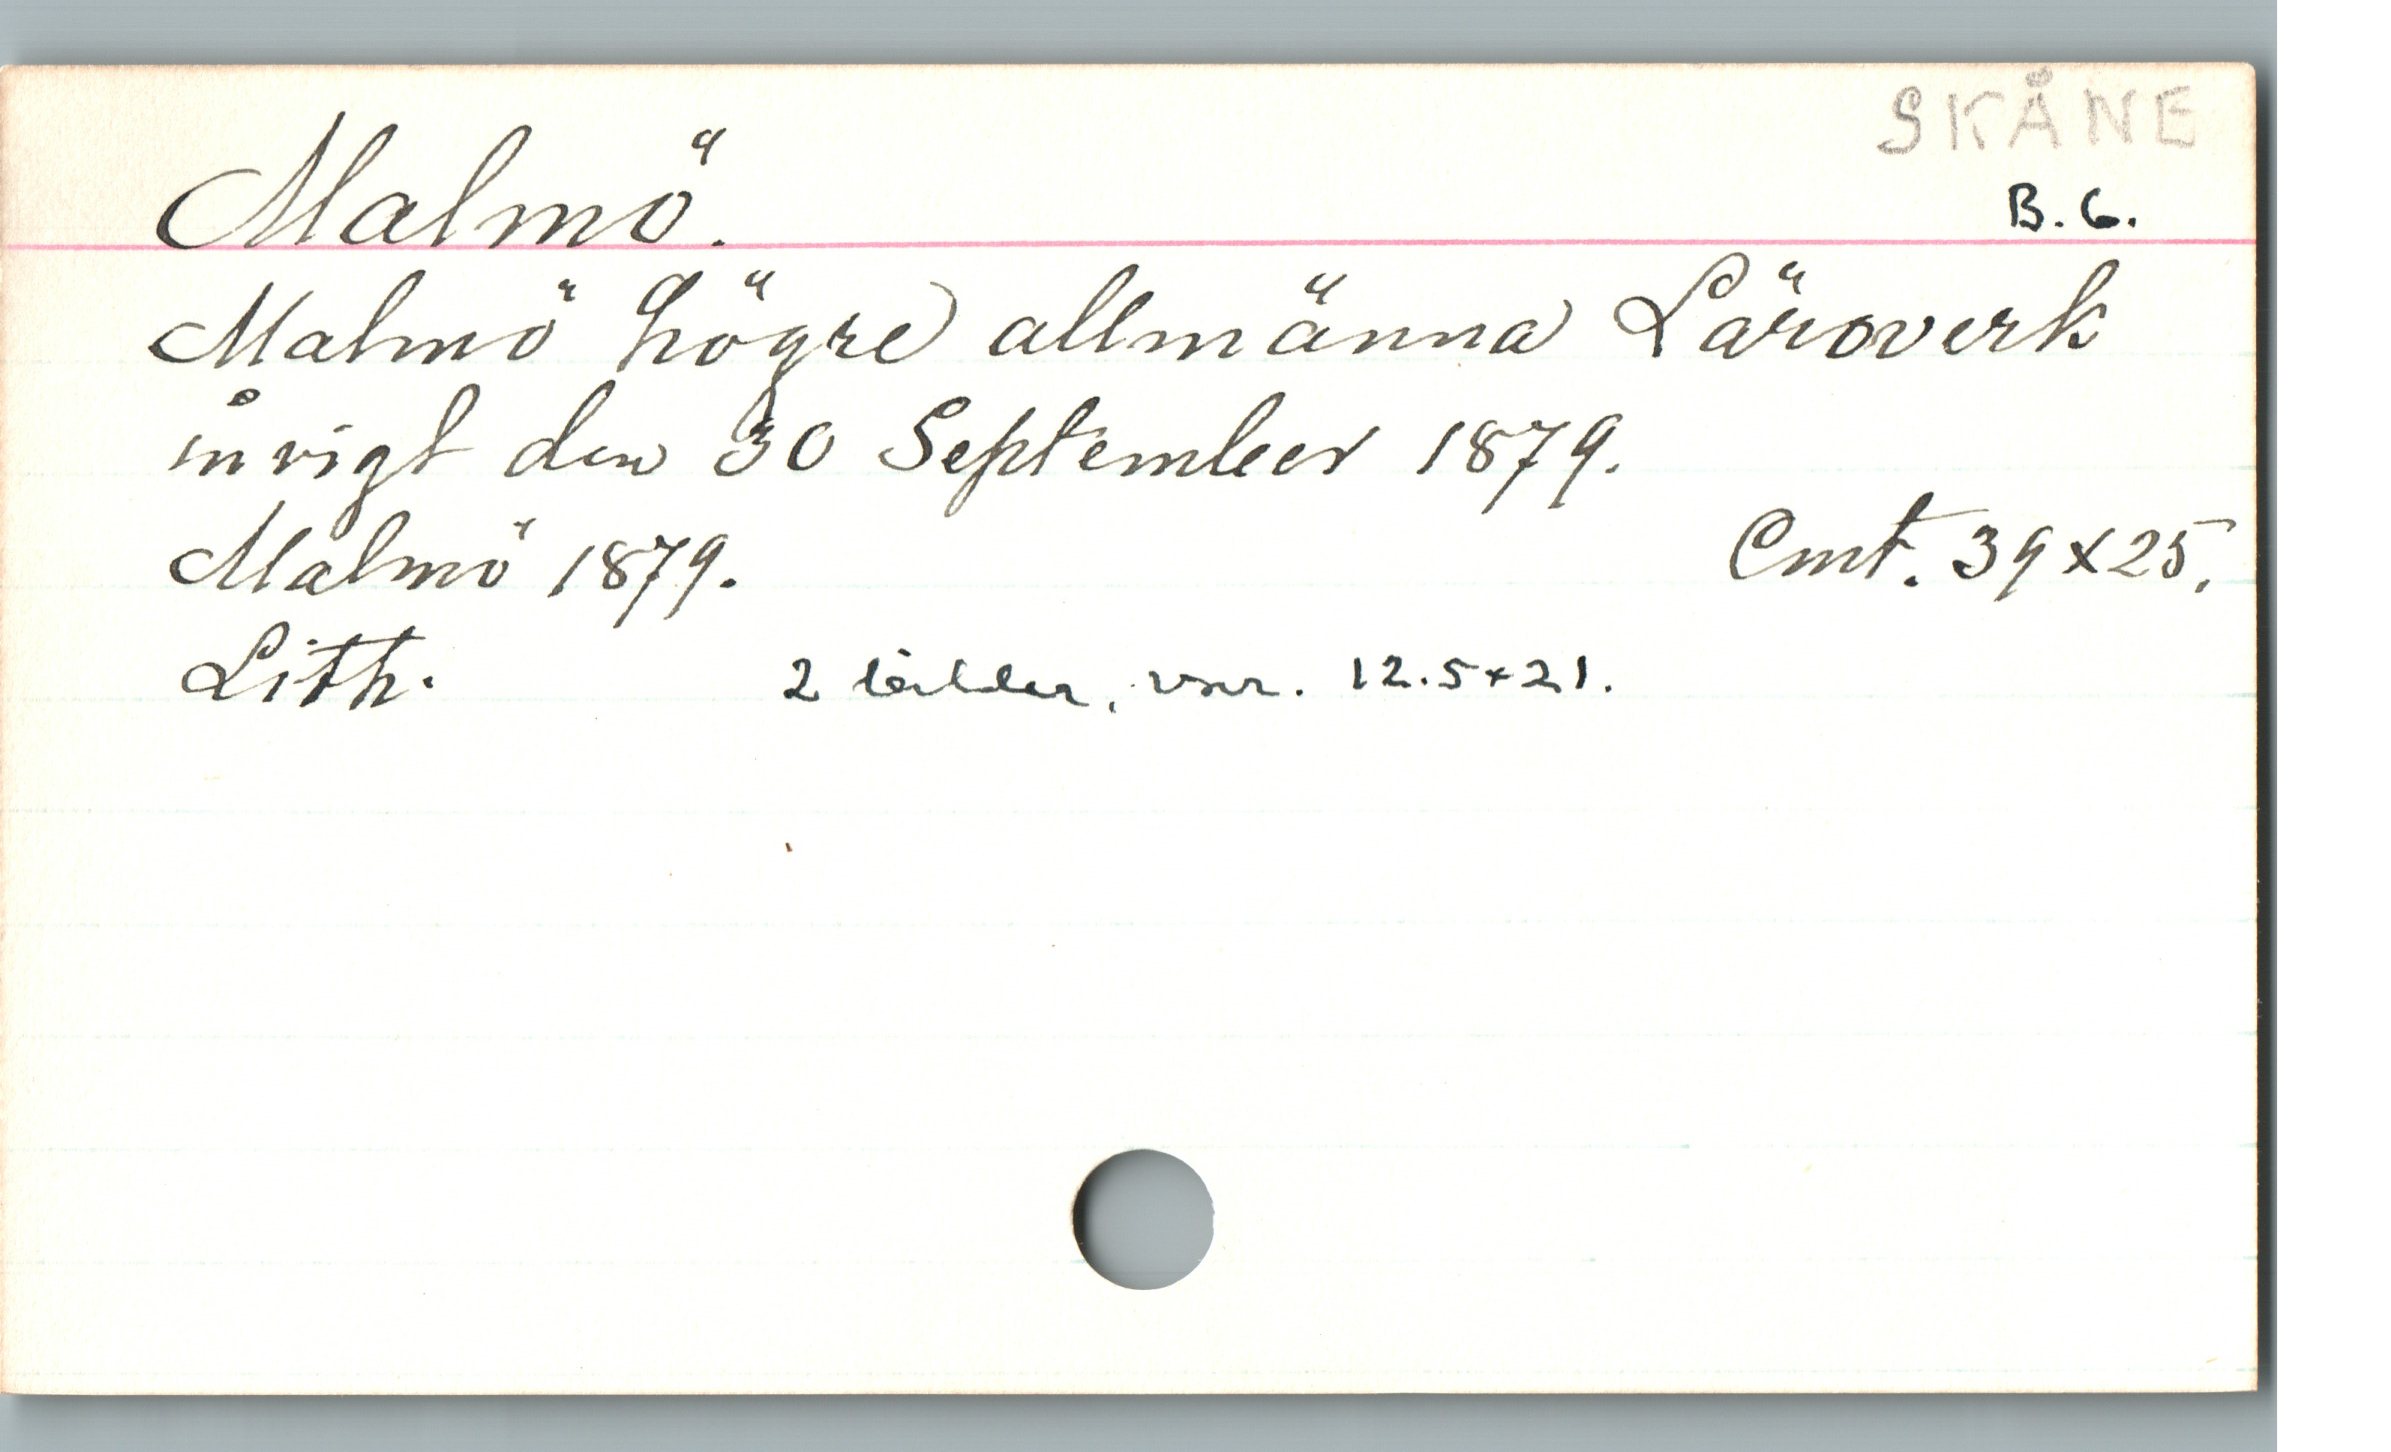 SKÅNE
Malmö.
B. G.
Malmö högre allmänna Läroverk
invigt den 30 September 1879.
Malmö 1879.
Cmt. 39 x 25.
Lith.
2 bilder, var. 12.5 x 21.